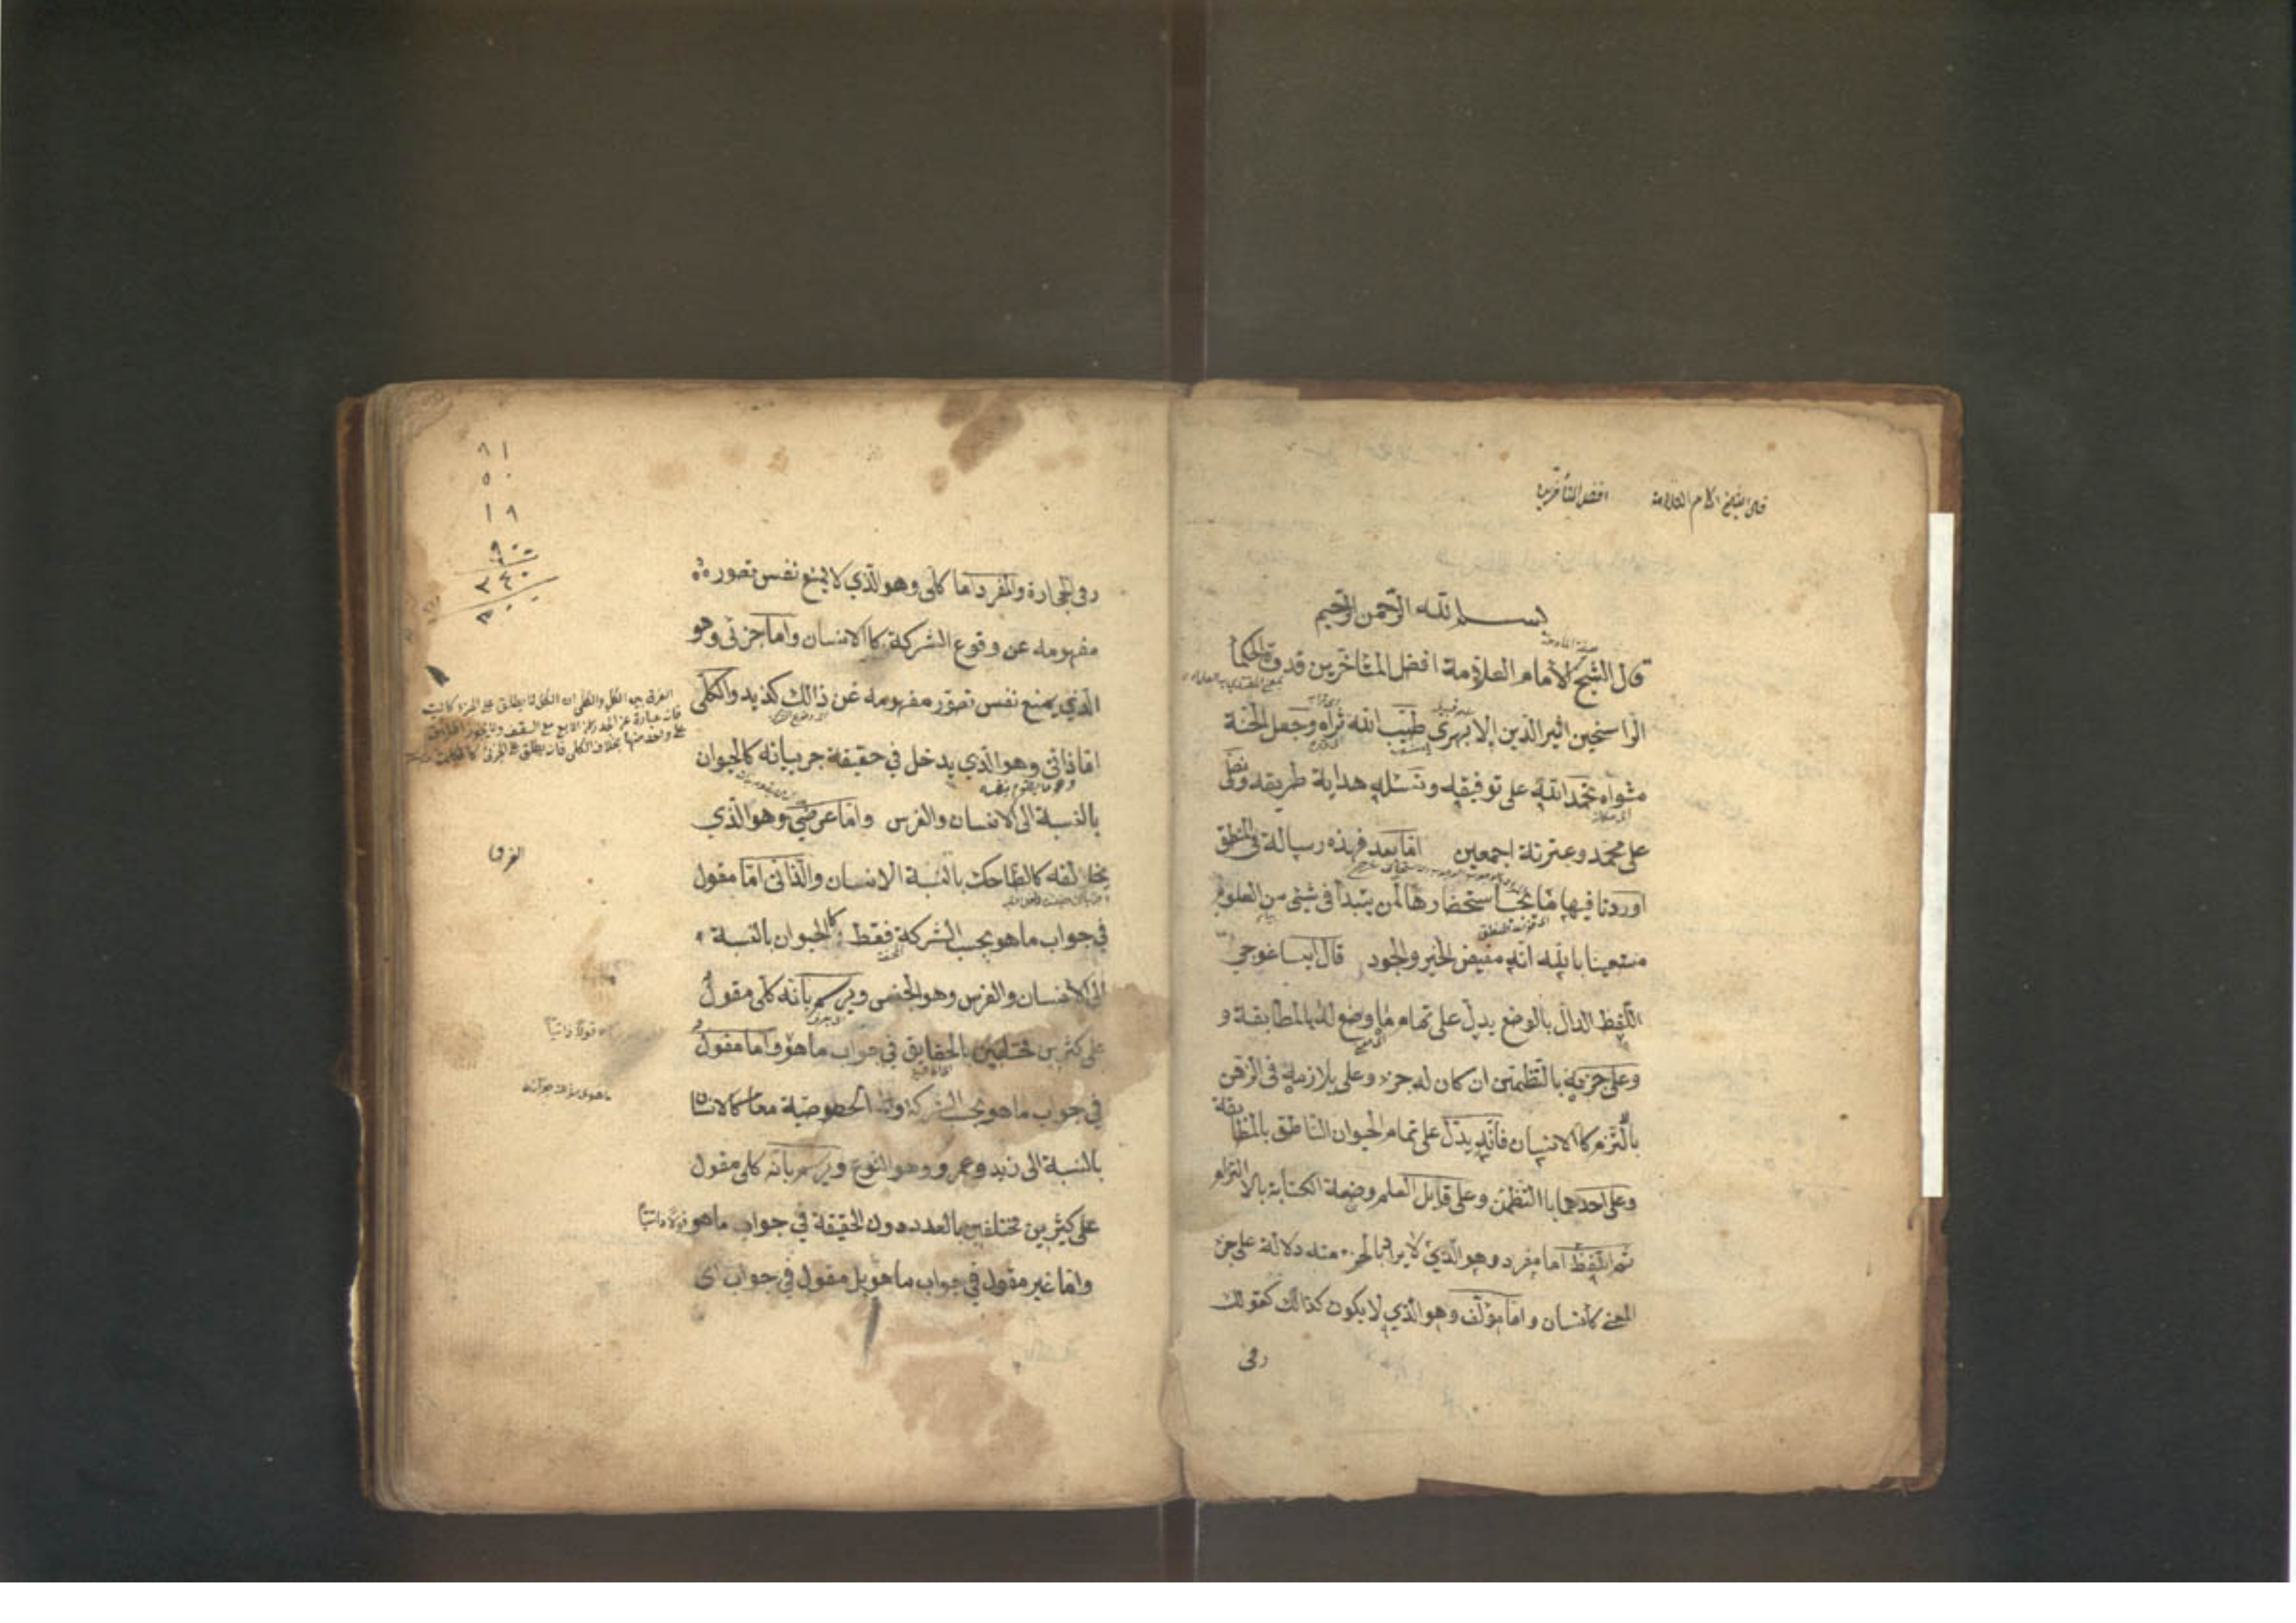 قال الشيخ الامام العلامة افضل المتأخرين
بسم الله الرحمن الرحيم
قال الشيخ الامام العلامة افضل المتاخرين قدوة الحكما
الراسخين اثير الدين الابهرى طيب الله ثراه وجعل الجنة
مثواه نحمد الله على توفيقه ونسئله هداية طريقه ونصلى
على محمد وعترته اجمعين اما بعد فهذه رسالة فى المنطق
اوردنا فيها ما يجب استحضارها لمن يبتدأ فى شئى من العلوم
مستعينا بالله انه مفيض الخير والجود قال ايساغوجى
اللفظ الدال بالوضع يدل على تمام ما وضع له بالمطابقة و
وعلى جزئه بالتظمن ان كان له جزء وعلى يلازمه فى الذهن
بالتزم كا الانسان فانه يدل على تمام الحيوان الناطق بالمظابقة
وعلى احدهما باالتظمن وعلى قابل العلم وضعة الكتابة بالالتزام
ثم اللفظ اما مفرد وهو الذي لا يراد بالجزء منه دلالة على جزء
المعنى كانسان واما مؤلف وهو الذي لا يكون كذالك كقولك
رمى
رمى الحجارة والمفرد اما كلى وهو الذي لا يمنع نفس تصور
مفهومه عن وقوع الشركة كا الانسان واما جزئى وهو
الذي يمنع نفس تصور مفهومه عن ذالك كذيد والكلى
اما ذاتى وهو الذي يدخل في حقيقة جزيياته كالحيوان
بالنسبة الى الانسان والفرس واما عرضي وهو الذي
يخالفه كالظاحك بالنسبة الانسان والذاتى اما مقول
في جواب ما هو بحسب الشركة فقط كالحيوان بالنسبة
الى الانسان والفرس وهو الجنس ويرسم بانه كلى مقول
على كثيرين مختلفين بالحقايق في جواب ما هو واما مقول
في جواب ما هو بحسب الشركة والخصوصية معا كالانسان
بالنسبة الى زيد وعمرو وهو النوع ويرسم بانه كلى مقول
على كثيرين مختلفين بالعدد دون الحقيقة في جواب ما هو قولا ذاتيا
واما غير مقول في جواب ما هو بل مقول في جواب اى
٨١
٥٠
١٩
الفرق بين الكل والكلى ان الكل لا يطلق على الجزء كالبيت
الفرق
قولا ذاتيا